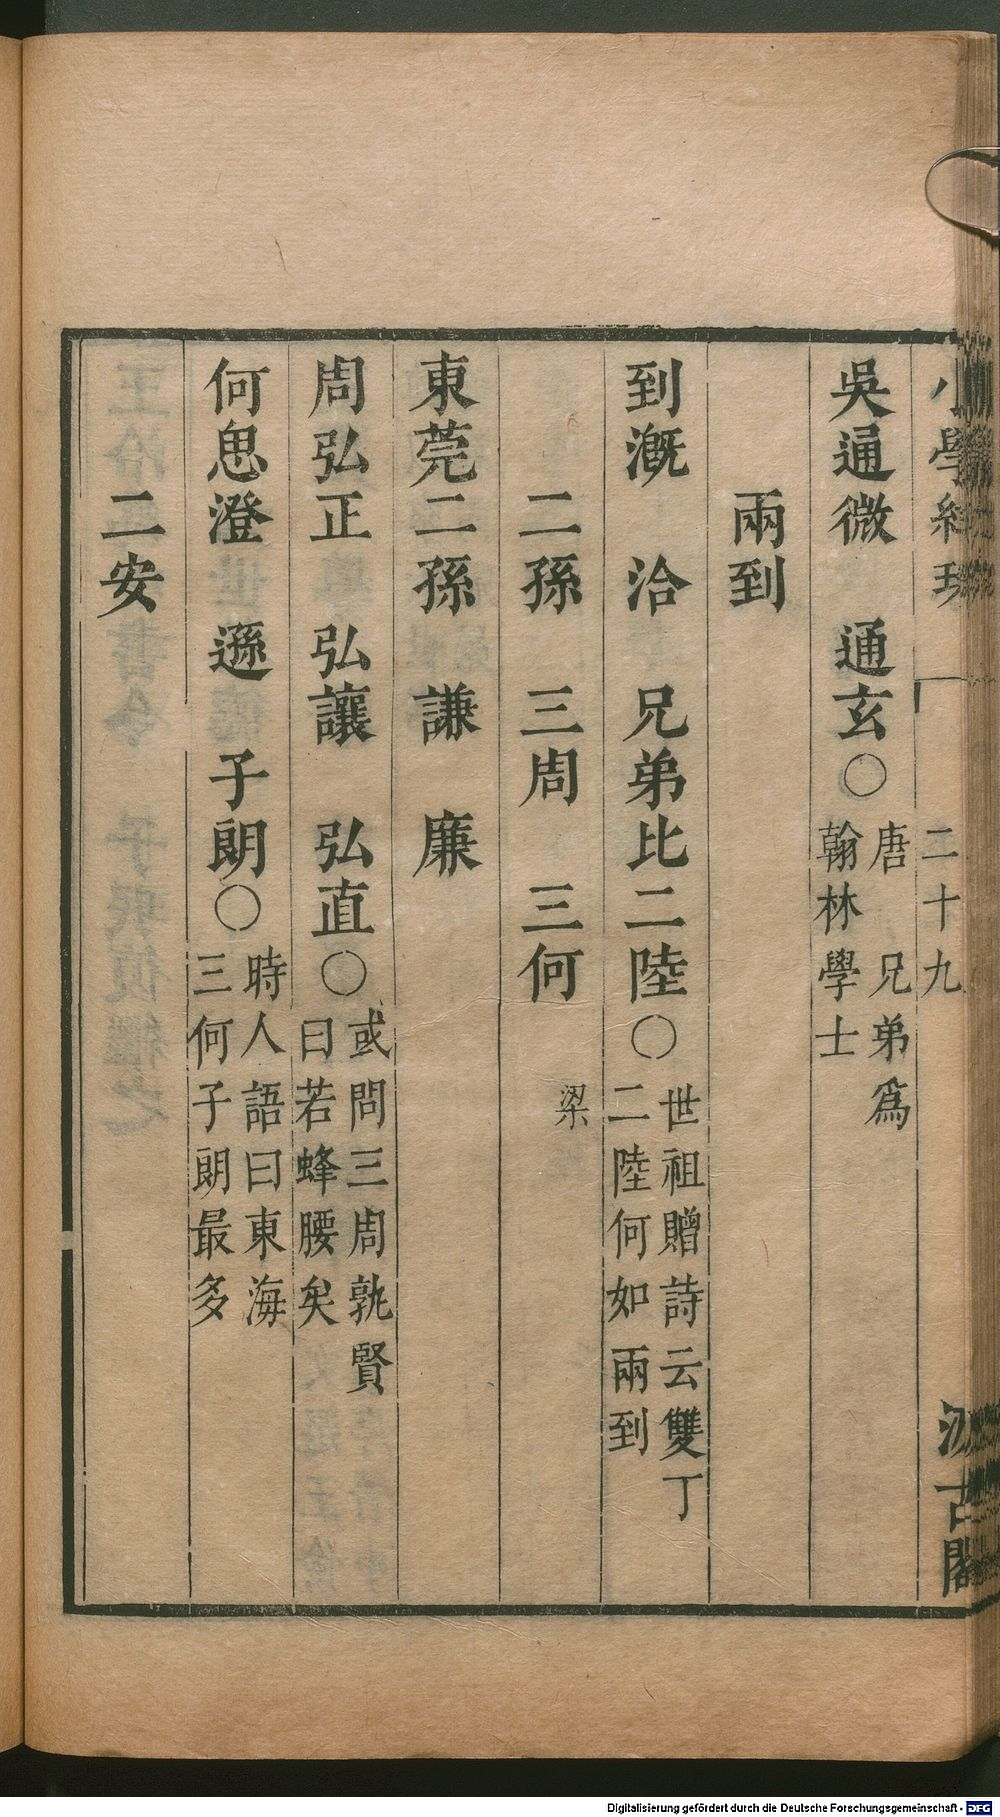 小學紺珠 二十九 汲古閣
吳通微 通玄○唐 兄弟爲
翰林學士
兩到
到漑 洽 兄弟比二陸○世祖贈詩云雙丁
二陸何如兩到
二孫 三周 三何 梁
東莞二孫 謙 廉
周弘正 弘讓 弘直○或問三周孰賢
曰若蜂腰矣
何思澄 遜 子朗○時人語曰東海
三何子朗最多
二安
Digitalisierung gefördert durch die Deutsche Forschungsgemeinschaft - DFG